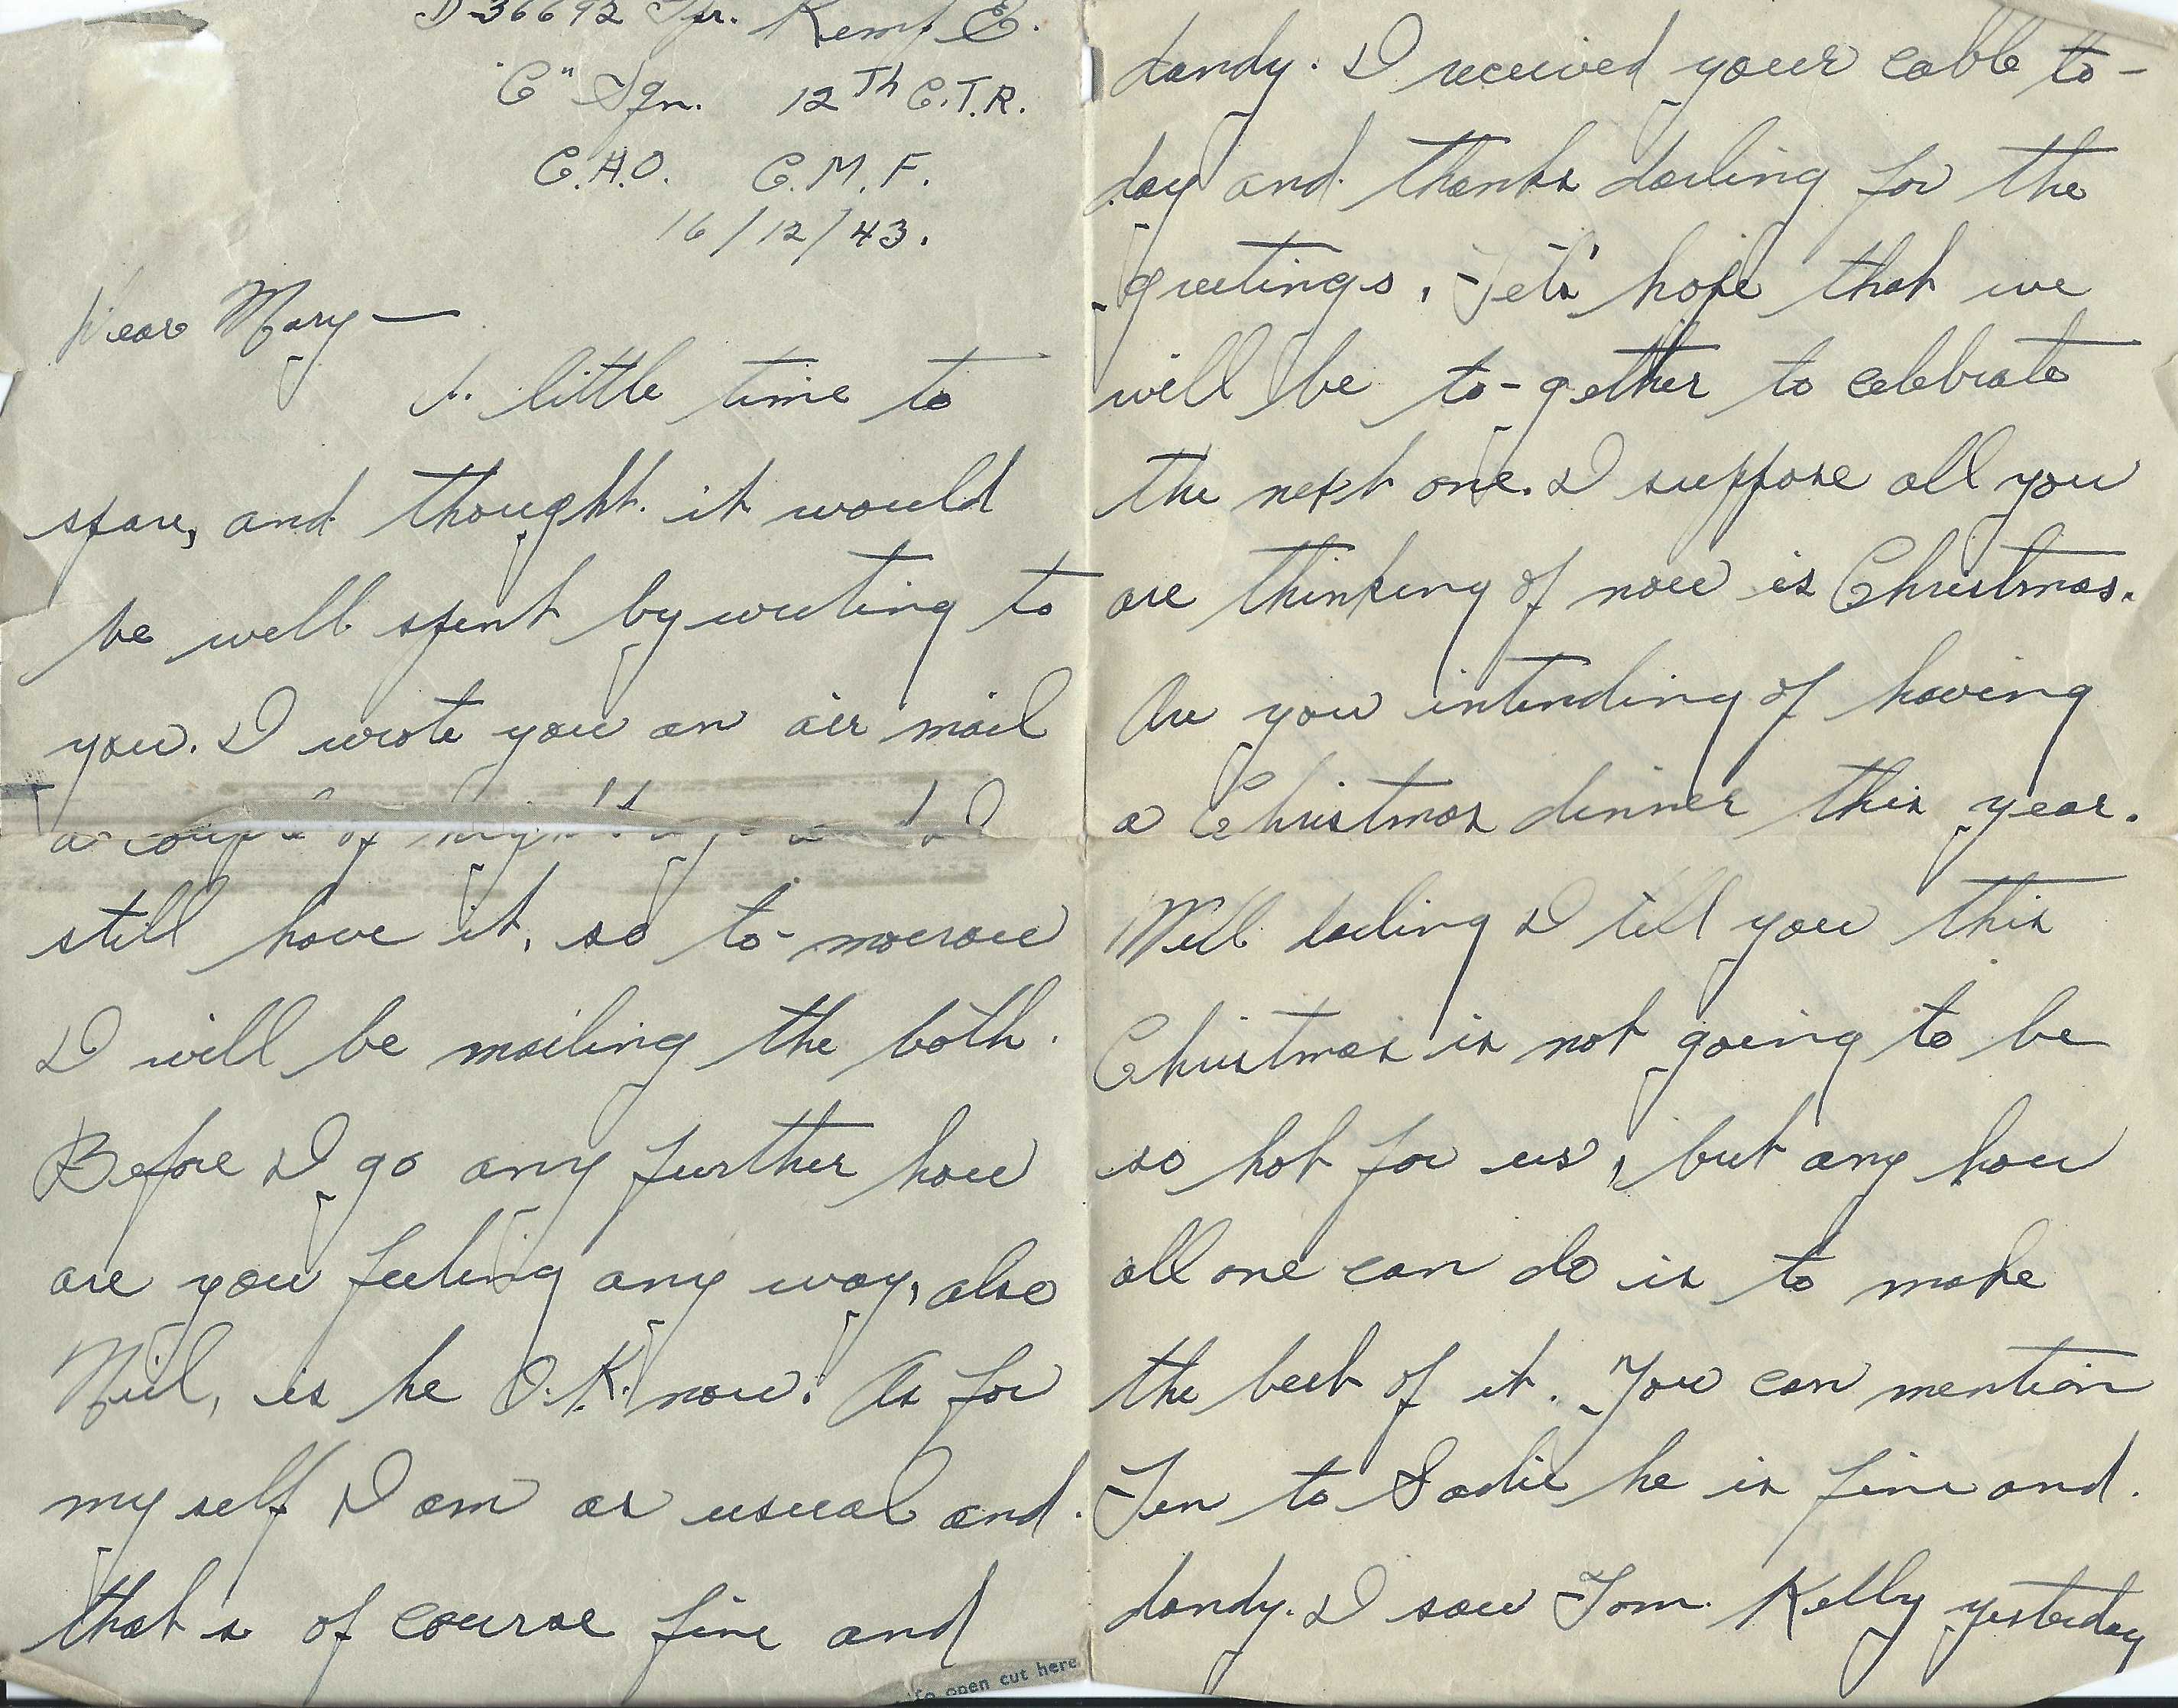 D-36692 Tpr. Kemp E.
"C" Sqn. 12th C.T.R.
C.A.O. C.M.F.
16/12/43.
Dear Mary —
A little time to
spare, and thought it would
be well spent by writing to
you. I wrote you an air mail
a couple of night's ago and I
still have it, so to-morrow
I will be mailing the both.
Before I go any further how
are you feeling any way, also
Neil, is he O.K. now. As for
my self I am as usual and
that's of course fine and
to open cut here
dandy. I received your cable to-
day and thanks darling for the
greetings. Let's hope that we
will be to-gether to celebrate
the next one. I suppose all you
are thinking of now is Christmas.
Are you intending of having
a Christmas dinner this year.
Well darling I tell you this
Christmas is not going to be
so hot for us, but any how
all one can do is to make
the best of it. You can mention
to Sadie he is fine and
dandy. I saw Tom Kelly yesterday